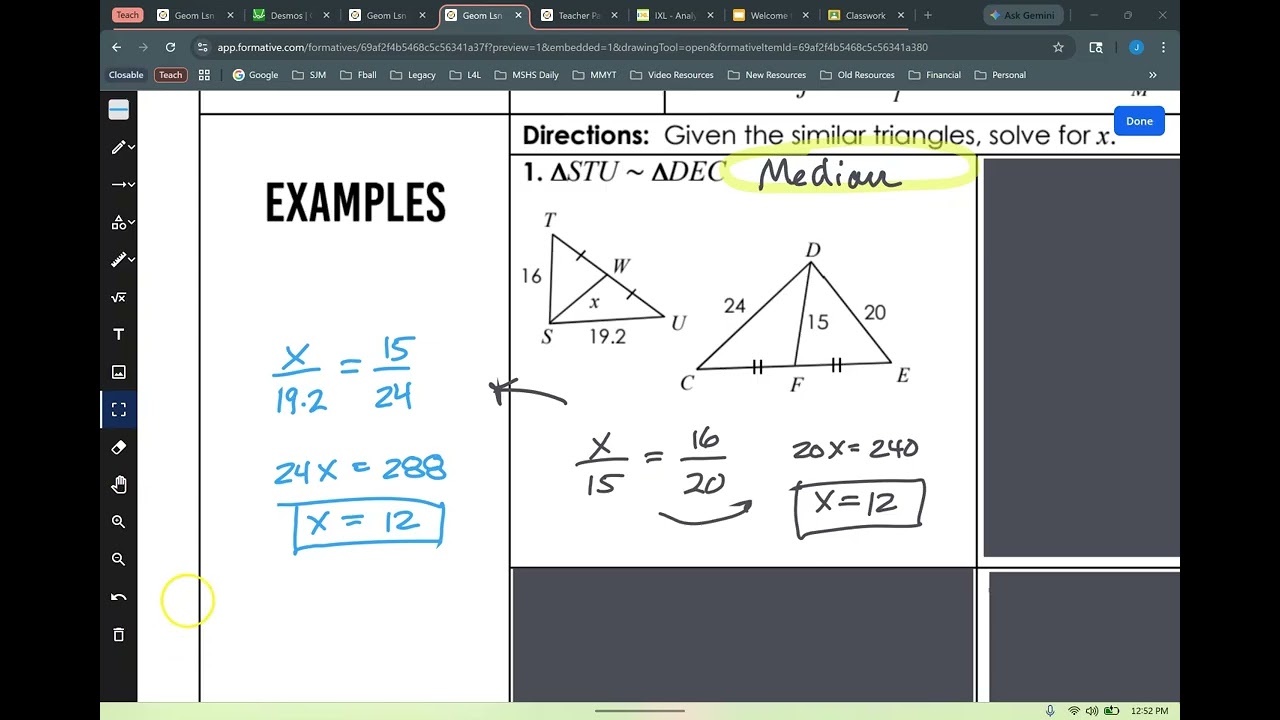 Teach
Geom Lsn
Desmos | (
Geom Lsn
Geom Lsn
Teacher Pa
IXL - Analy
Welcome
Classwork
Ask Gemini
app.formative.com/formatives/69af2f4b5468c5c56341a37f?preview=1&embedded=1&drawingTool=open&formativeItemId=69af2f4b5468c5c56341a380
J
Closable
Teach
Google
SJM
Fball
Legacy
L4L
MSHS Daily
MMYT
Video Resources
New Resources
Old Resources
Financial
Personal
Done
Directions: Given the similar triangles, solve for x.
EXAMPLES
1. ΔSTU ~ ΔDEC Median
T
16
W
x
S
19.2
U
D
24
15
20
C
F
E
x/19.2 = 15/24
24x = 288
x = 12
x/15 = 16/20
20x = 240
x = 12
12:52 PM